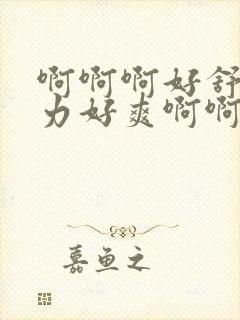 啊啊啊好舒
力好爽啊啊
嘉鱼之